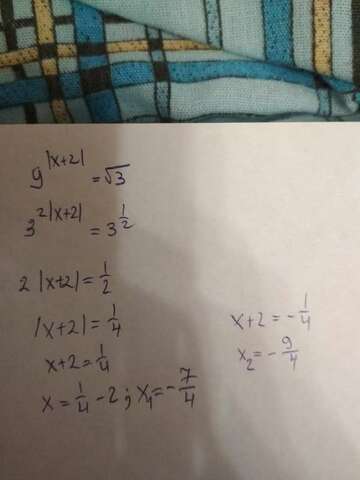 9^|x+2| = √3
3^2|x+2| = 3^1/2
2|x+2| = 1/2
|x+2| = 1/4
x+2 = 1/4
x = 1/4 - 2; x₁ = -7/4
x+2 = -1/4
x₂ = -9/4